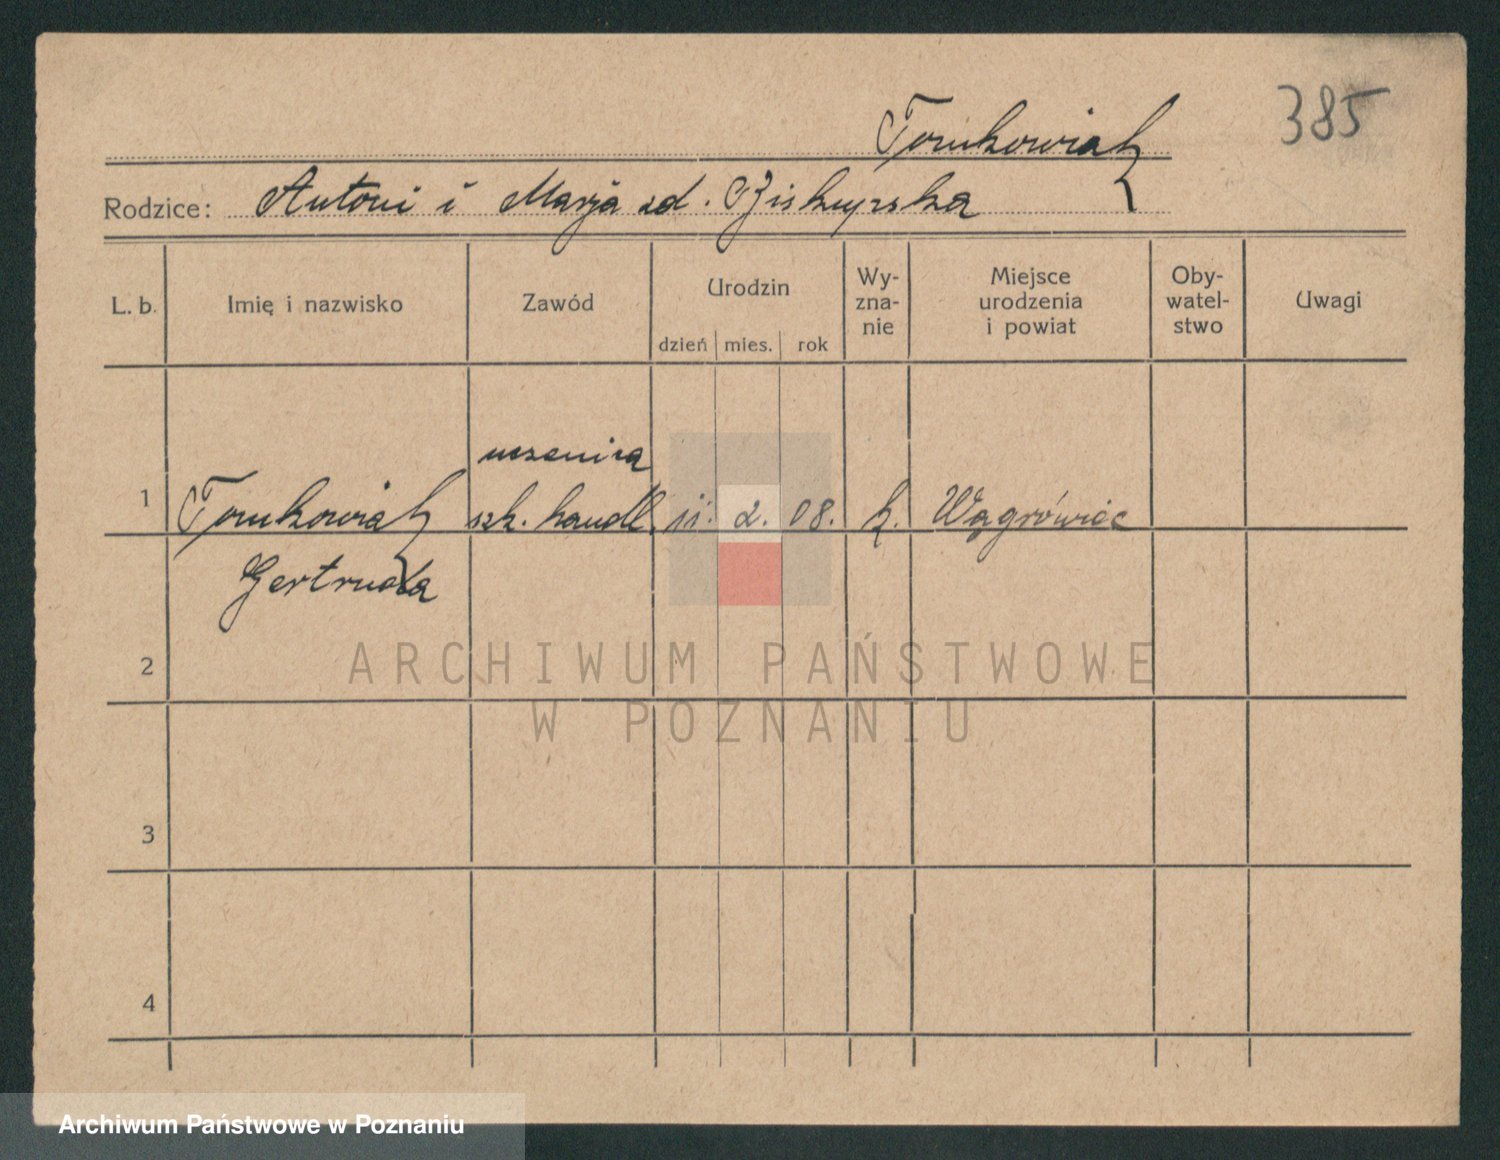 385
Tomkowiak
Rodzice: Antoni i Marja zd. Biskupska
L. b. Imię i nazwisko Zawód Urodzin dzień mies. rok Wy-zna-nie Miejsce urodzenia i powiat Oby-watel-stwo Uwagi
uczenica
1 Tomkowiak szk. handl. 11. 2. 08. k. Wągrówiec
Gertruda
2
3
4
ARCHIWUM PAŃSTWOWE
W POZNANIU
Archiwum Państwowe w Poznaniu